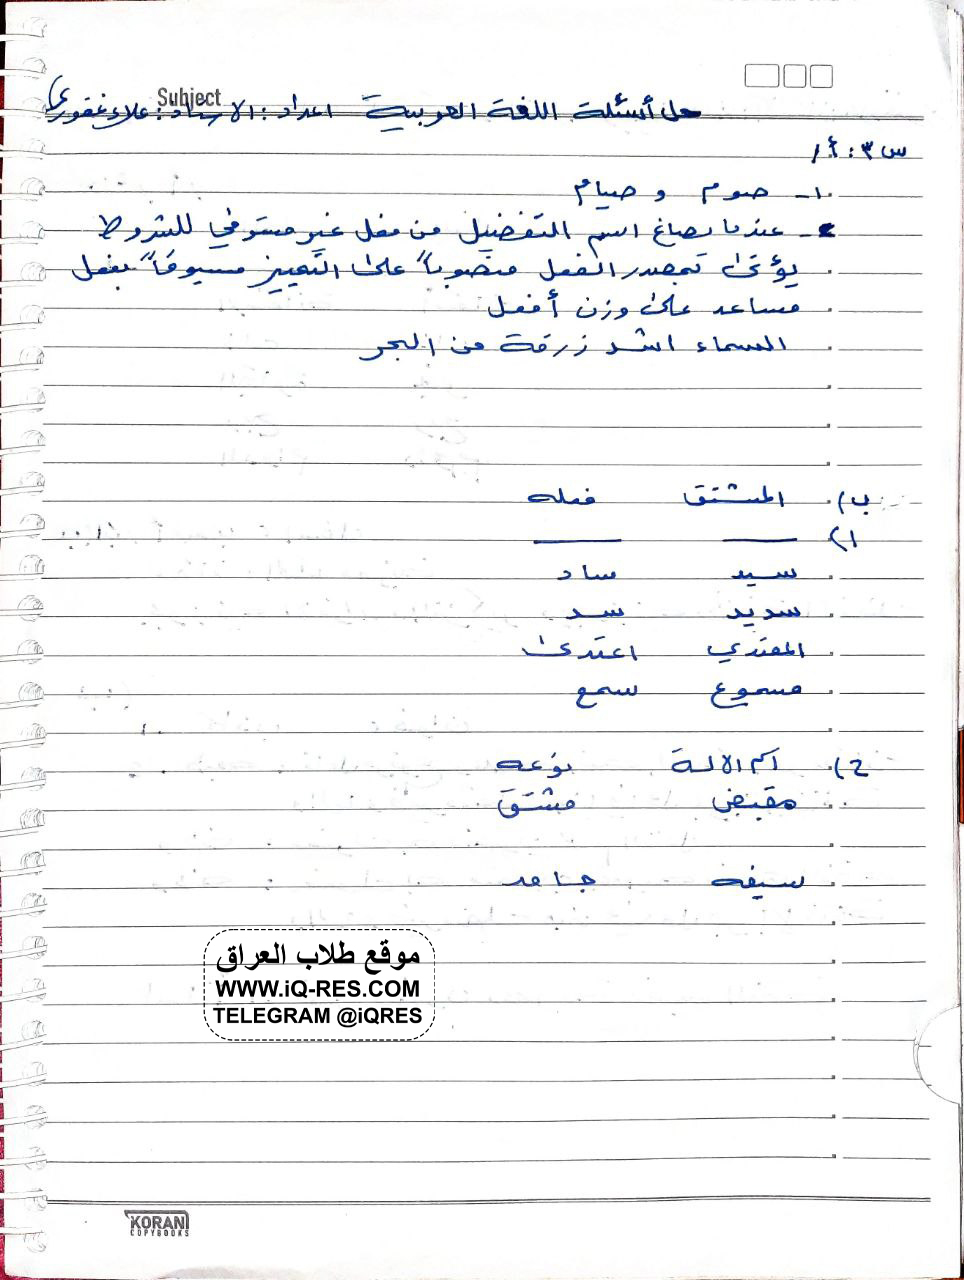 Subject
حل أسئلة اللغة العربية اعداد: الاستاذ: علاء غفوري
س٣: أ/
١- صوم و صيام
٢- عندما يصاغ اسم التفضيل من فعل غير مستوفي للشروط
يؤتى بمصدر الفعل منصوباً على التمييز مسبوقاً بفعل
مساعد على وزن أفعل
السماء اشد زرقة من البحر
ب/ المشتق فعله
١)
سيد ساد
سديد سد
المعتدي اعتدى
مسموع سمع
٢) اسم الالة نوعه
مقبض مشتق
سيفه جامد
موقع طلاب العراق
WWW.iQ-RES.COM
TELEGRAM @iQRES
KORAN
COPYBOOKS